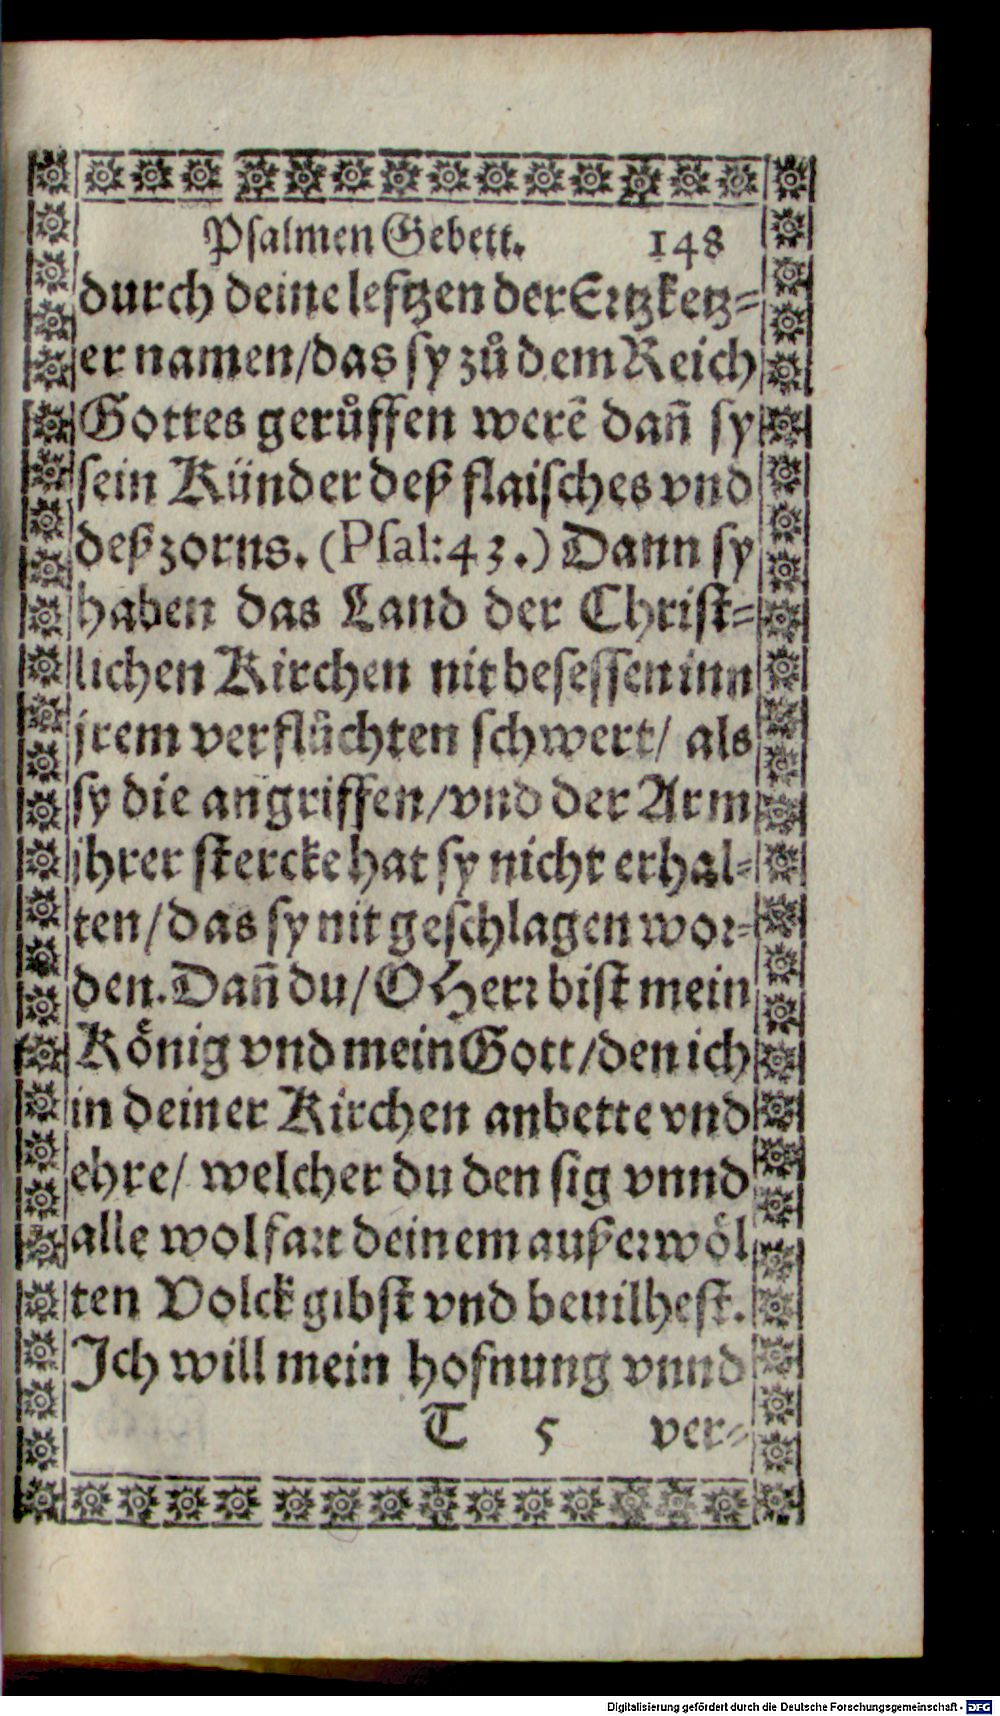 Psalmen Gebett. 148
durch deine leftzen der Ertzketz-
er namen/das sy zů dem Reich
Gottes gerůffen werẽ dañ sy
sein Künder deß flaisches vnd
deß zorns. (Psal:43.) Dann sy
haben das Land der Christ-
lichen Kirchen nit besessen inn
jrem verflůchten schwert/ als
sy die angriffen/vnd der Arm
ihrer stercke hat sy nicht erhal-
ten/das sy nit geschlagen wor-
den. Dañ du/O Herr bist mein
Kőnig vnd mein Gott/den ich
in deiner Kirchen anbette vnd
ehre/ welcher du den sig vnnd
alle wolfart deinem außerwől
ten Volck gibst vnd beuilhest.
Ich will mein hofnung vnnd
T 5 ver-
Digitalisierung gefördert durch die Deutsche Forschungsgemeinschaft - DFG